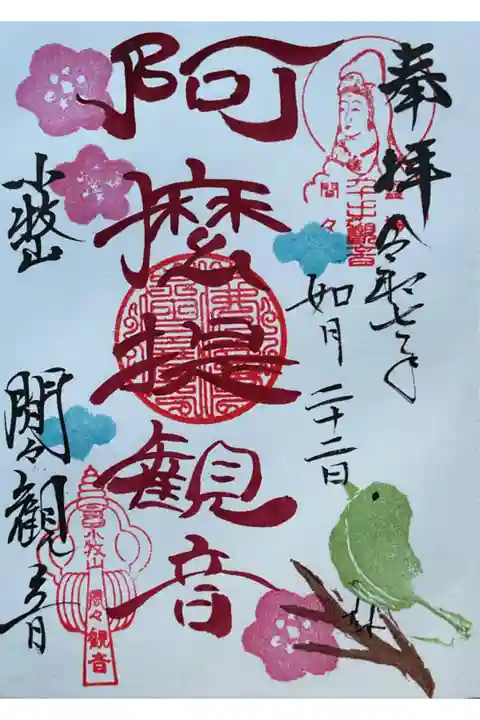 奉拝
令和七年
如月二十二日
千手観音
間々
阿麼提観音
小牧山
間々観音
小牧山
間々観音